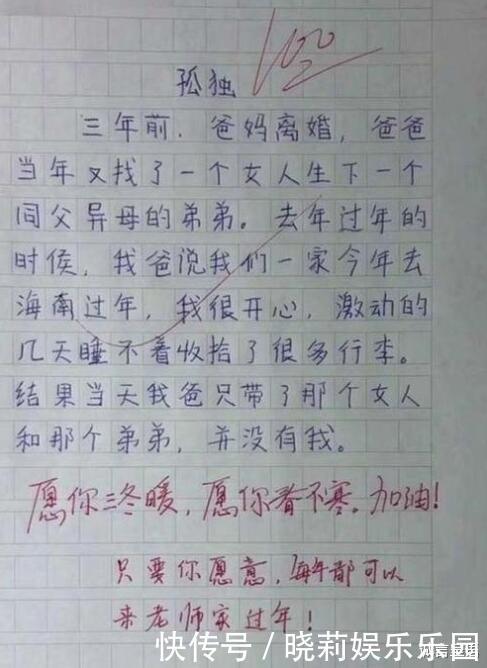 100
孤独
三年前.爸妈离婚,爸爸
当年又找了一个女人生下一个
同父异母的弟弟。去年过年的
时候,我爸说我们一家今年去
海南过年,我很开心,激动的
几天睡不着收拾了很多行李。
结果当天我爸只带了那个女人
和那个弟弟,并没有我。
愿你三冬暖,愿你春不寒。加油!
只要你愿意,每年都可以
来老师家过年!
快传号/晓莉娱乐乐园